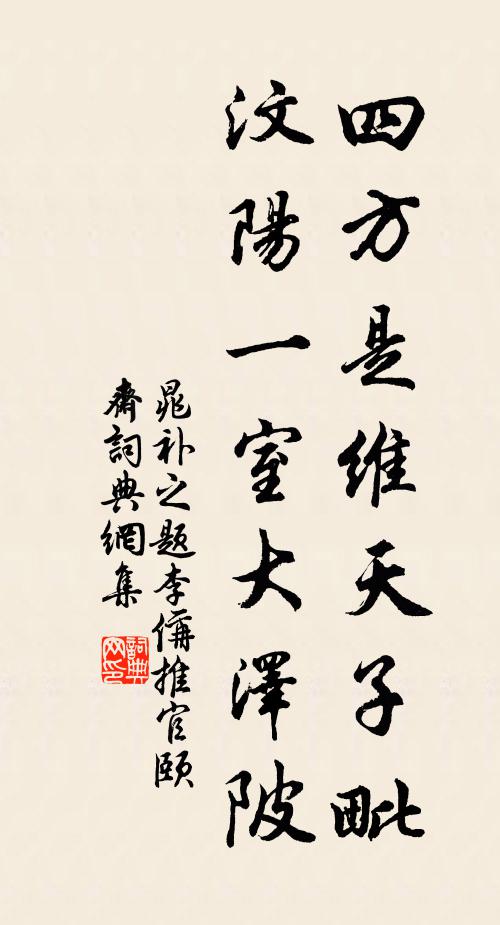 四方是維天子毗
汶陽一室大澤陂
晁补之题李偁推官颐
齋詞典網集
詞典
网印